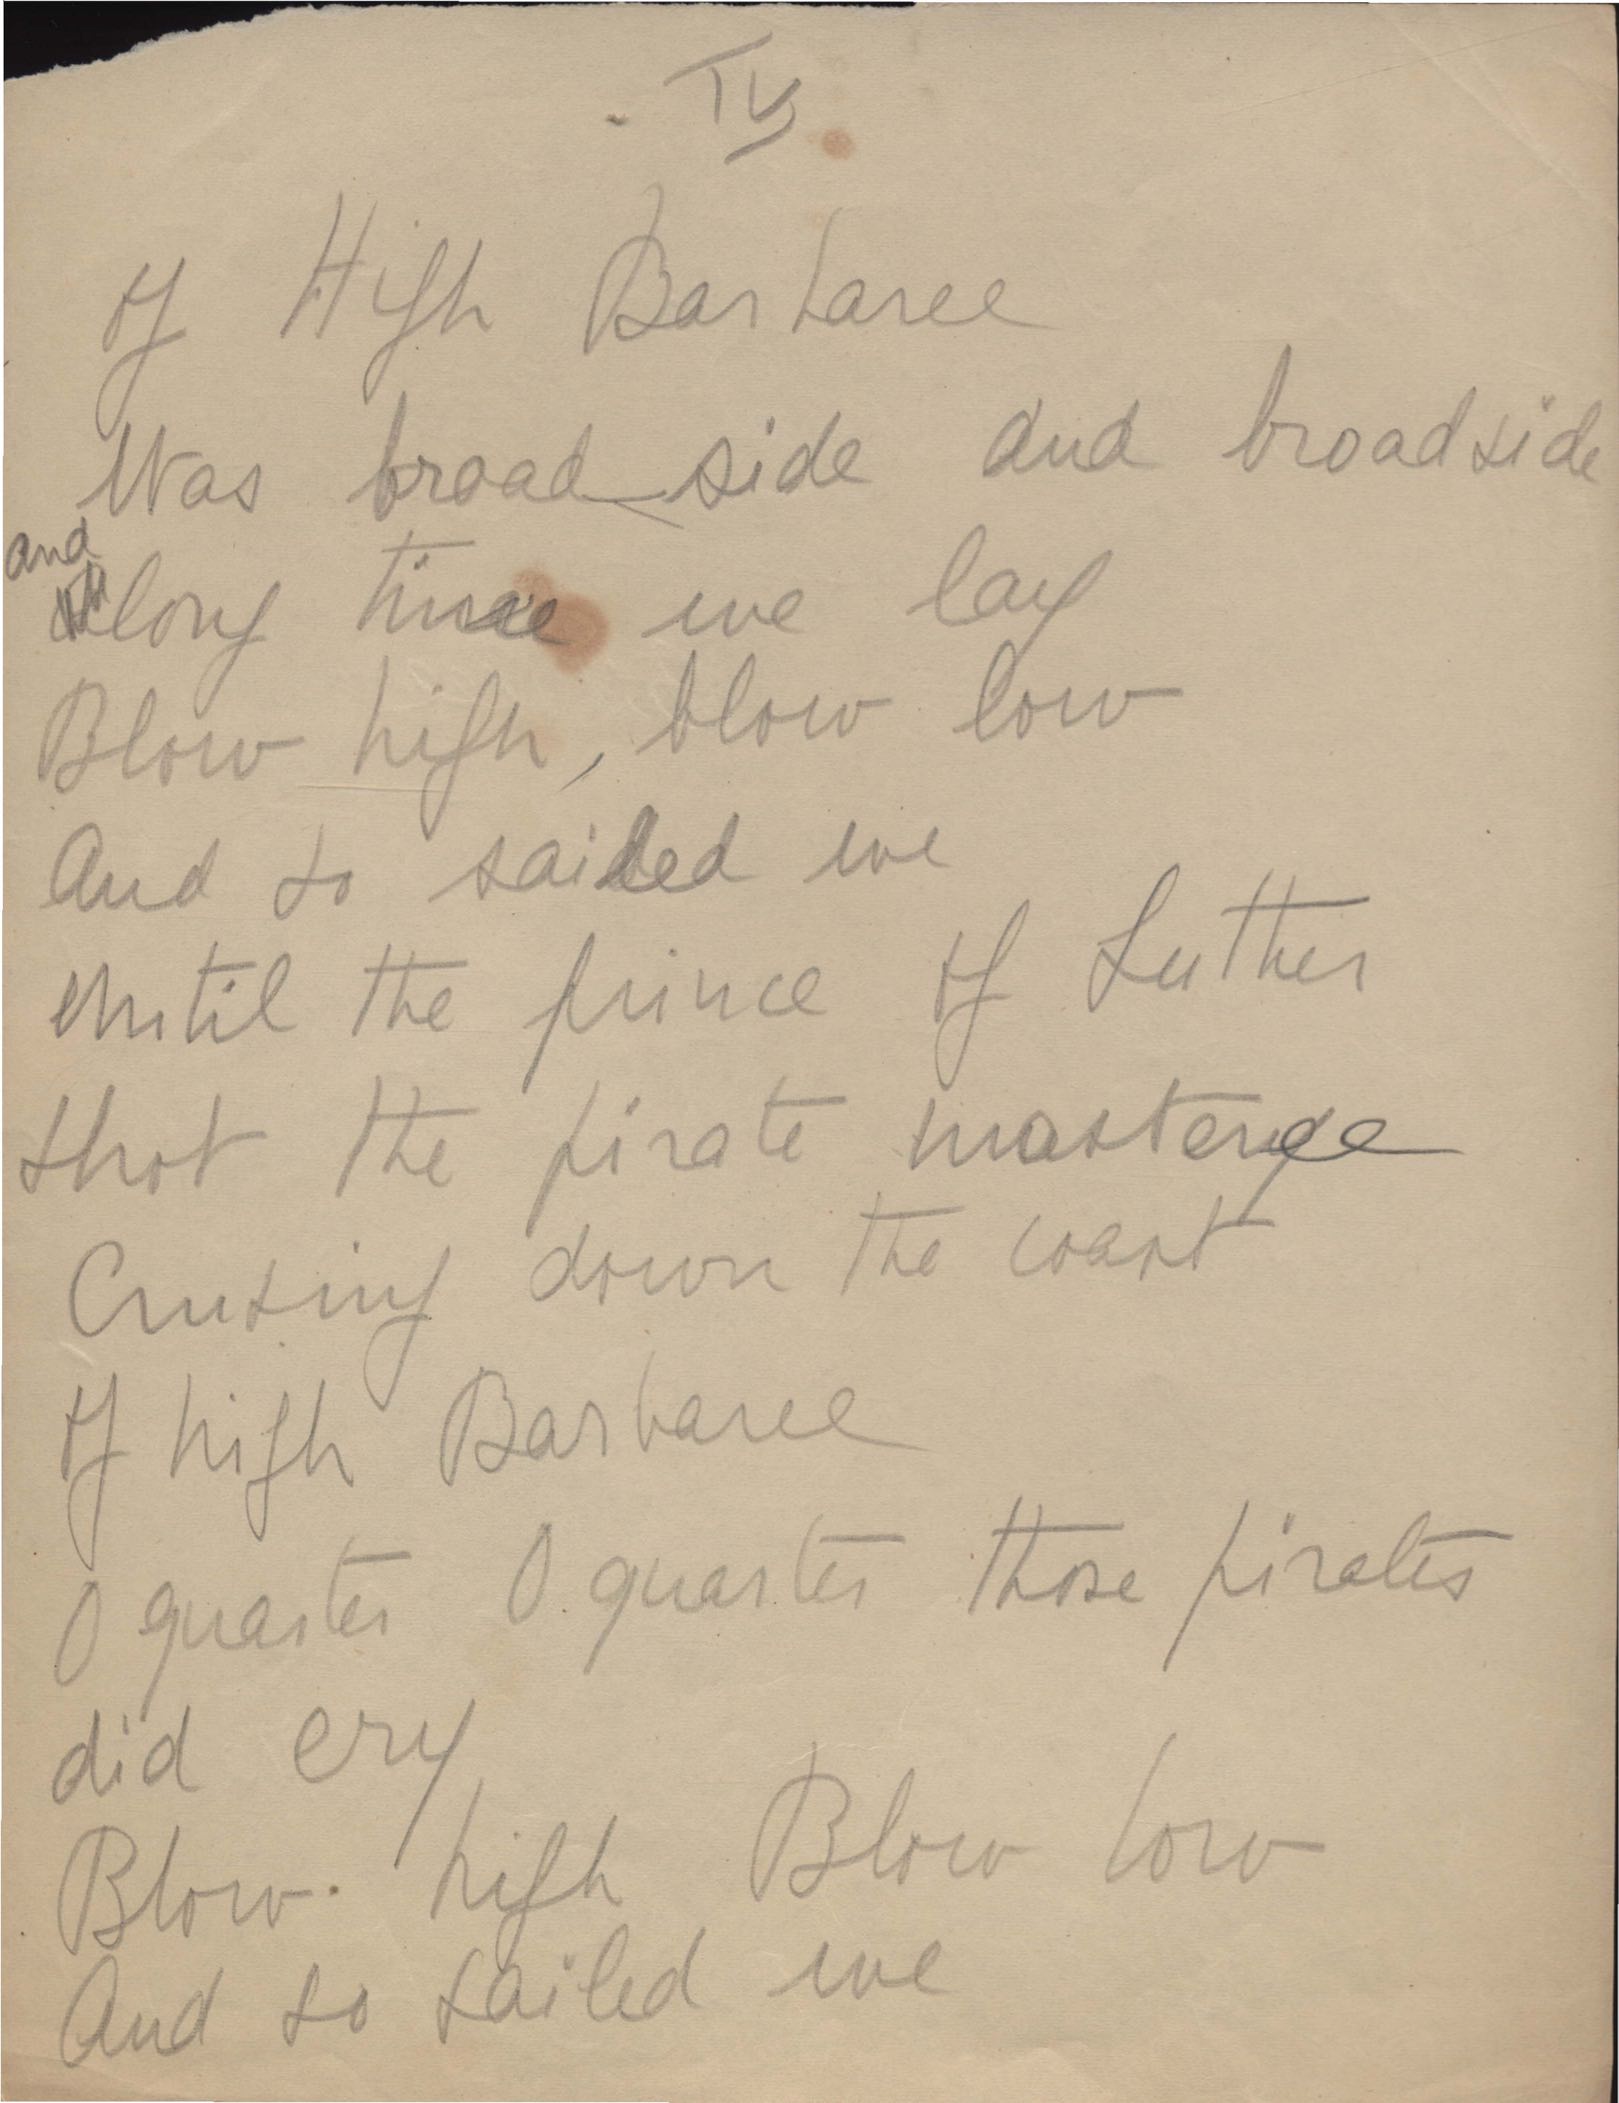 IV
of High Barbaree
Was broad side and broadside
and
long time we lay
Blow high, blow low
And so sailed we
Until the prince of Luther
shot the pirate masterge
Crusing down the coast
of high Barbaree
O quarter O quarter those pirates
did cry
Blow high Blow low
And so sailed we